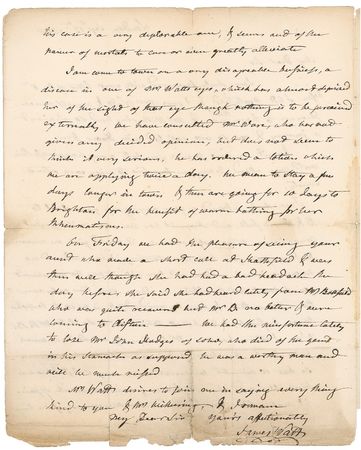 His case is a very deplorable one, & seems out of the
power of mortals to cure or even greatly alleviate
I am come to town on a very disagreeable business, a
disease in one of Mrs Watts eyes, which has almost deprived
her of the sight of that eye though nothing is to be perceived
externally, we have consulted Mr Ware, who has not
given any decided opinion, but does not seem to
think it very serious, he has ordered a lotion which
we are applying twice a day. We mean to stay a few
days longer in town & then are going for 10 days to
Brighton for the benefit of warm bathing for her
Rheumatisms.
On Friday we had the pleasure of seeing your
aunt who made a short call at Heathfield & was
then well though she had had a bad headach the
day before she said she had heard lately from Mr
who was quite recovered but Mr B no better & were
coming to Clifton — we had the misfortune lately
to lose Mr John Hodges of Soho, who died of the gout
in his Stomach as supposed he was a worthy man and
will be much missed
Mrs Watt desires to join me in saying every thing
kind to you & Mrs & I remain
My Dear Sir Yours affectionately
James Watt